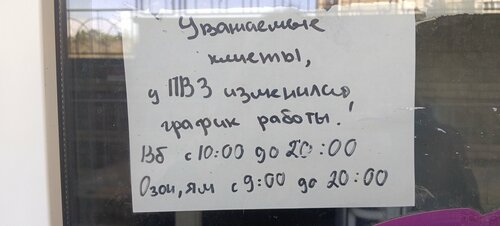 Уважаемые
клиеты,
у ПВЗ изменился
график работы!
Вб с 10:00 до 20:00
Озон, ЯМ с 9:00 до 20:00